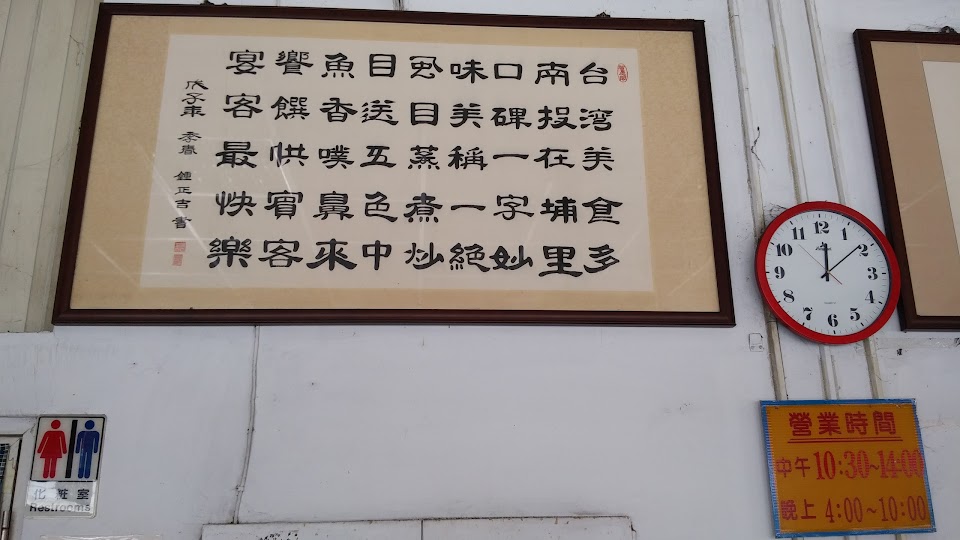 台湾美食多
南投在埔里
口碑一字妙
味美稱一絕
目蒸煮炒
目送五色中
魚香噗鼻來
饗饌供賓客
宴客最快樂
戊子年 季春 鍾正吉書
12
1
2
3
4
5
6
7
8
9
10
11
營業時間
中午10:30~14:00
晚上4:00~10:00
化粧室
Restrooms